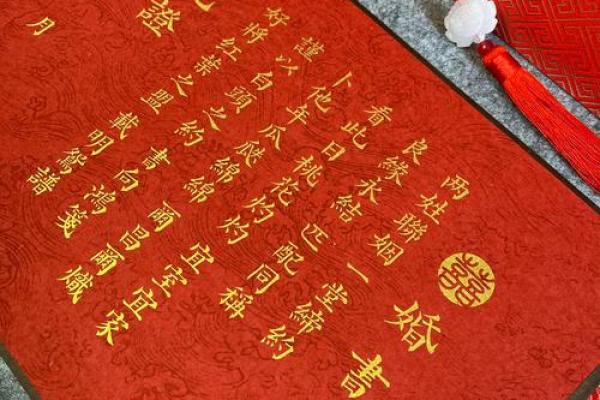 婚書
两姓聯姻一堂締約
良緣永結匹配同稱
看此日桃花灼灼宜室宜家
卜他年瓜瓞綿綿爾昌爾熾
謹以白頭之約書向鴻箋
好將紅葉之盟載明鴛譜
證
月